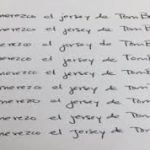 merezco el jersey de Tom B
merezco el jersey de Tom B
merezco el jersey de Tom
merezco el jersey de Tom
merezco el jersey de Tom
merezco el jersey de Tom
merezco el jersey de Tom
merezco el jersey de Tom